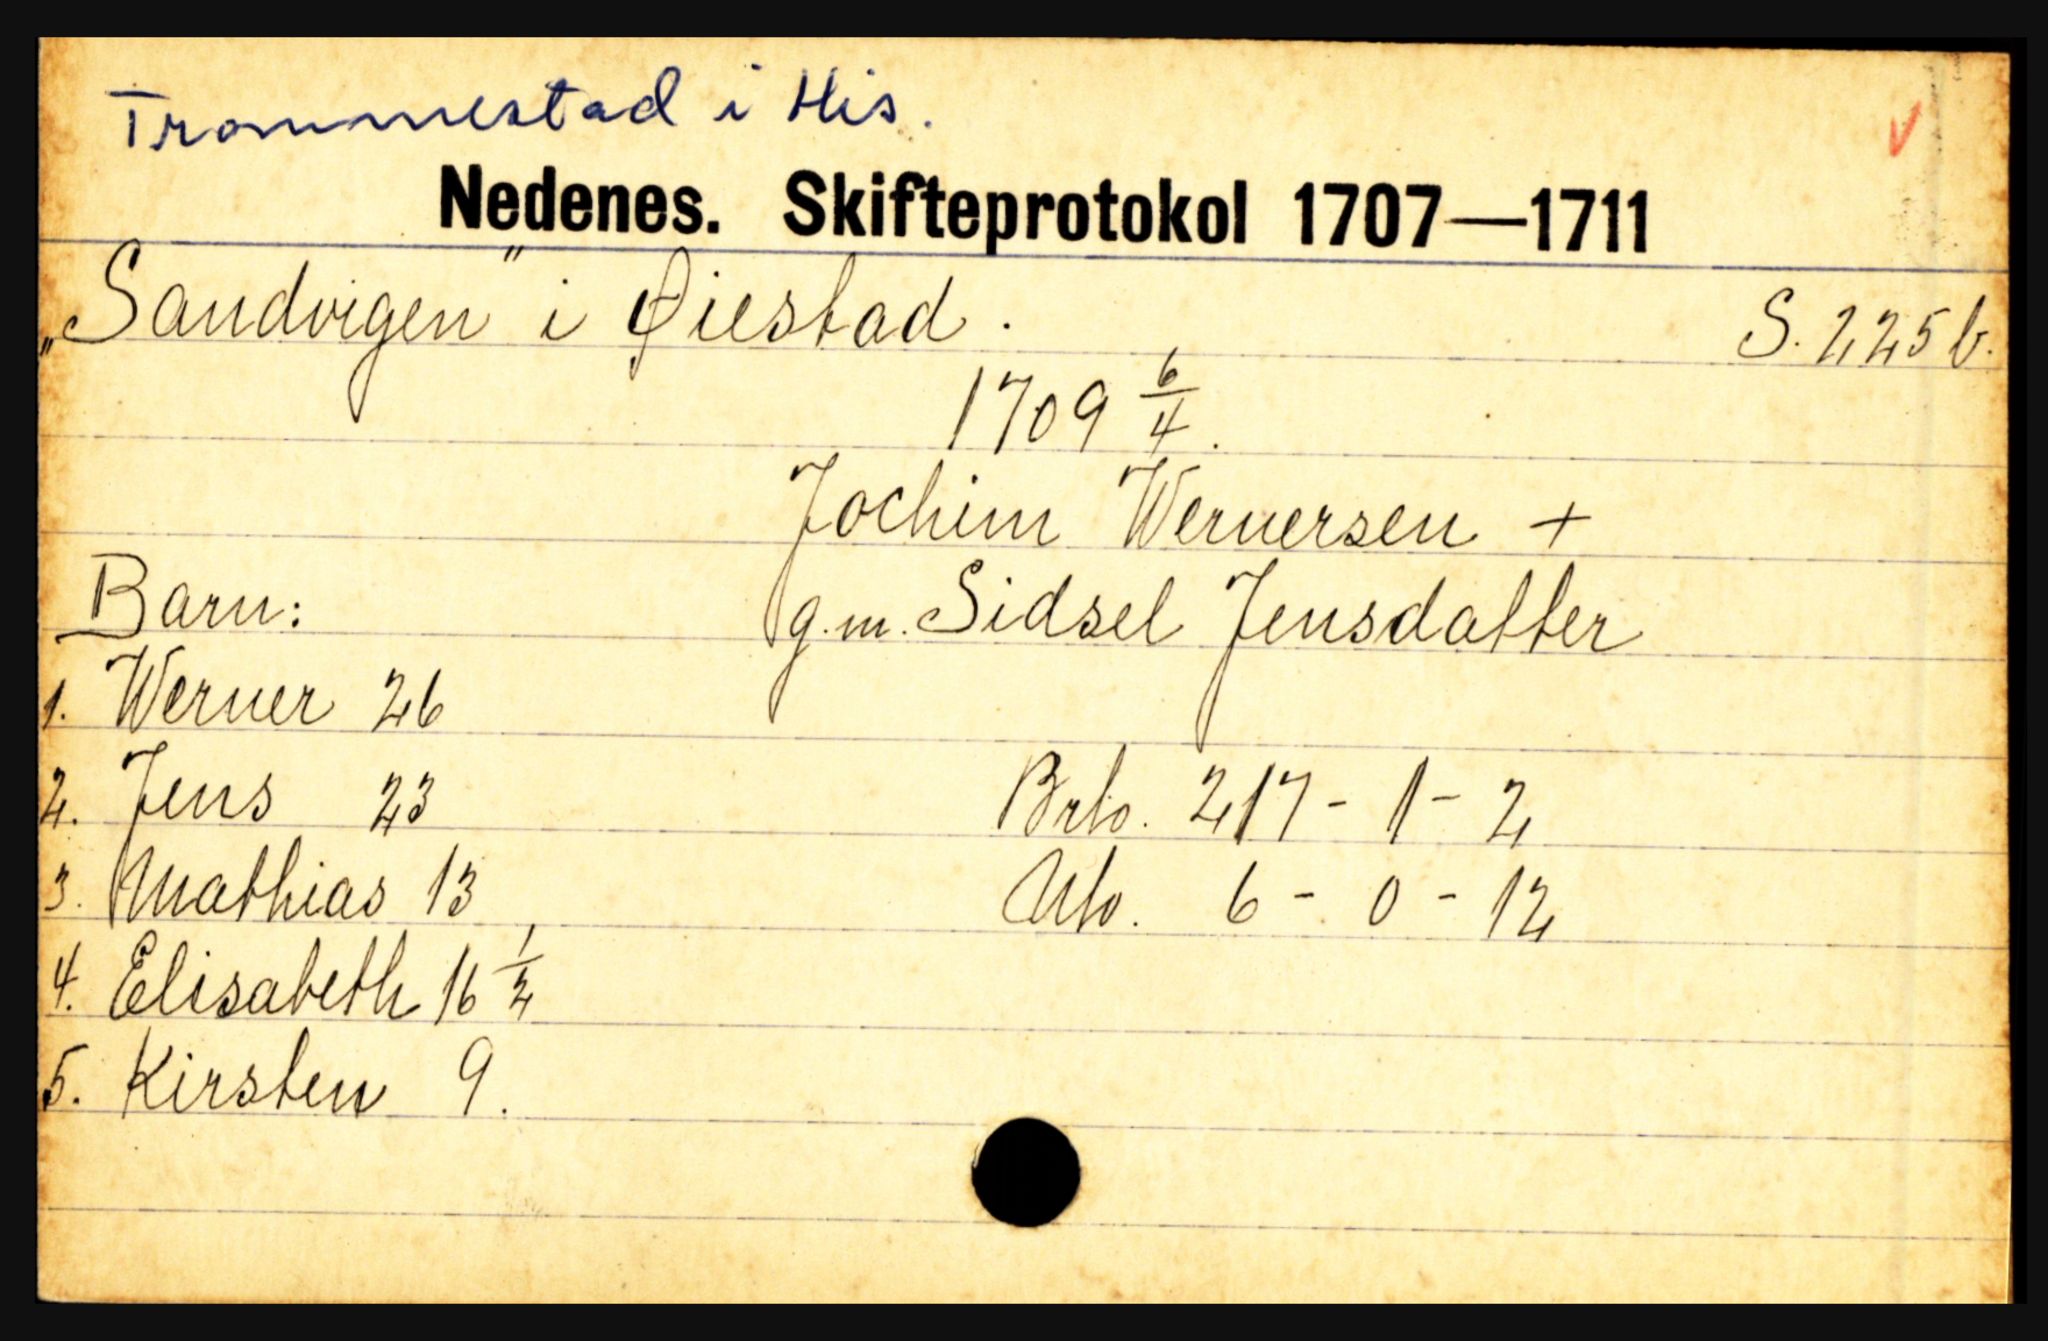 Trommestad i His.
Nedenes. Skifteprotokol 1707—1711
„Sandvigen" i Øiestad.
S. 225 b.
1709 6/4.
Jochim Wernersen +
g.m. Sidsel Jensdatter
Barn:
1. Werner 26
2. Jens 23
3. Mathias 13
4. Elisabeth 16 1/2
5. Kirsten 9.
Brto. 217 - 1 - 2
Nto. 6 - 0 - 12